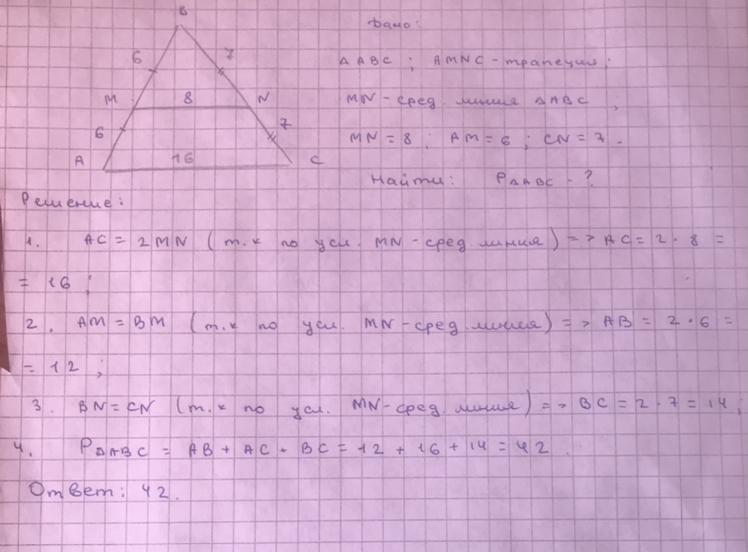 B
Дано:
6 7
Δ ABC ; AMNC - трапеция ;
M 8 N
MN - сред. линия Δ ABC ,
6 7
MN = 8 ; AM = 6 ; CN = 7 .
A 16 C
Найти: PΔABC - ?
Решение:
1. AC = 2MN ( т.к по усл. MN - сред. линия ) => AC = 2 · 8 =
= 16 ;
2. AM = BM ( т.к по усл. MN - сред. линия ) => AB = 2 · 6 =
= 12 ;
3. BN = CN ( т.к по усл. MN - сред. линия ) => BC = 2 · 7 = 14 ;
4. PΔABC = AB + AC + BC = 12 + 16 + 14 = 42 .
Ответ: 42.